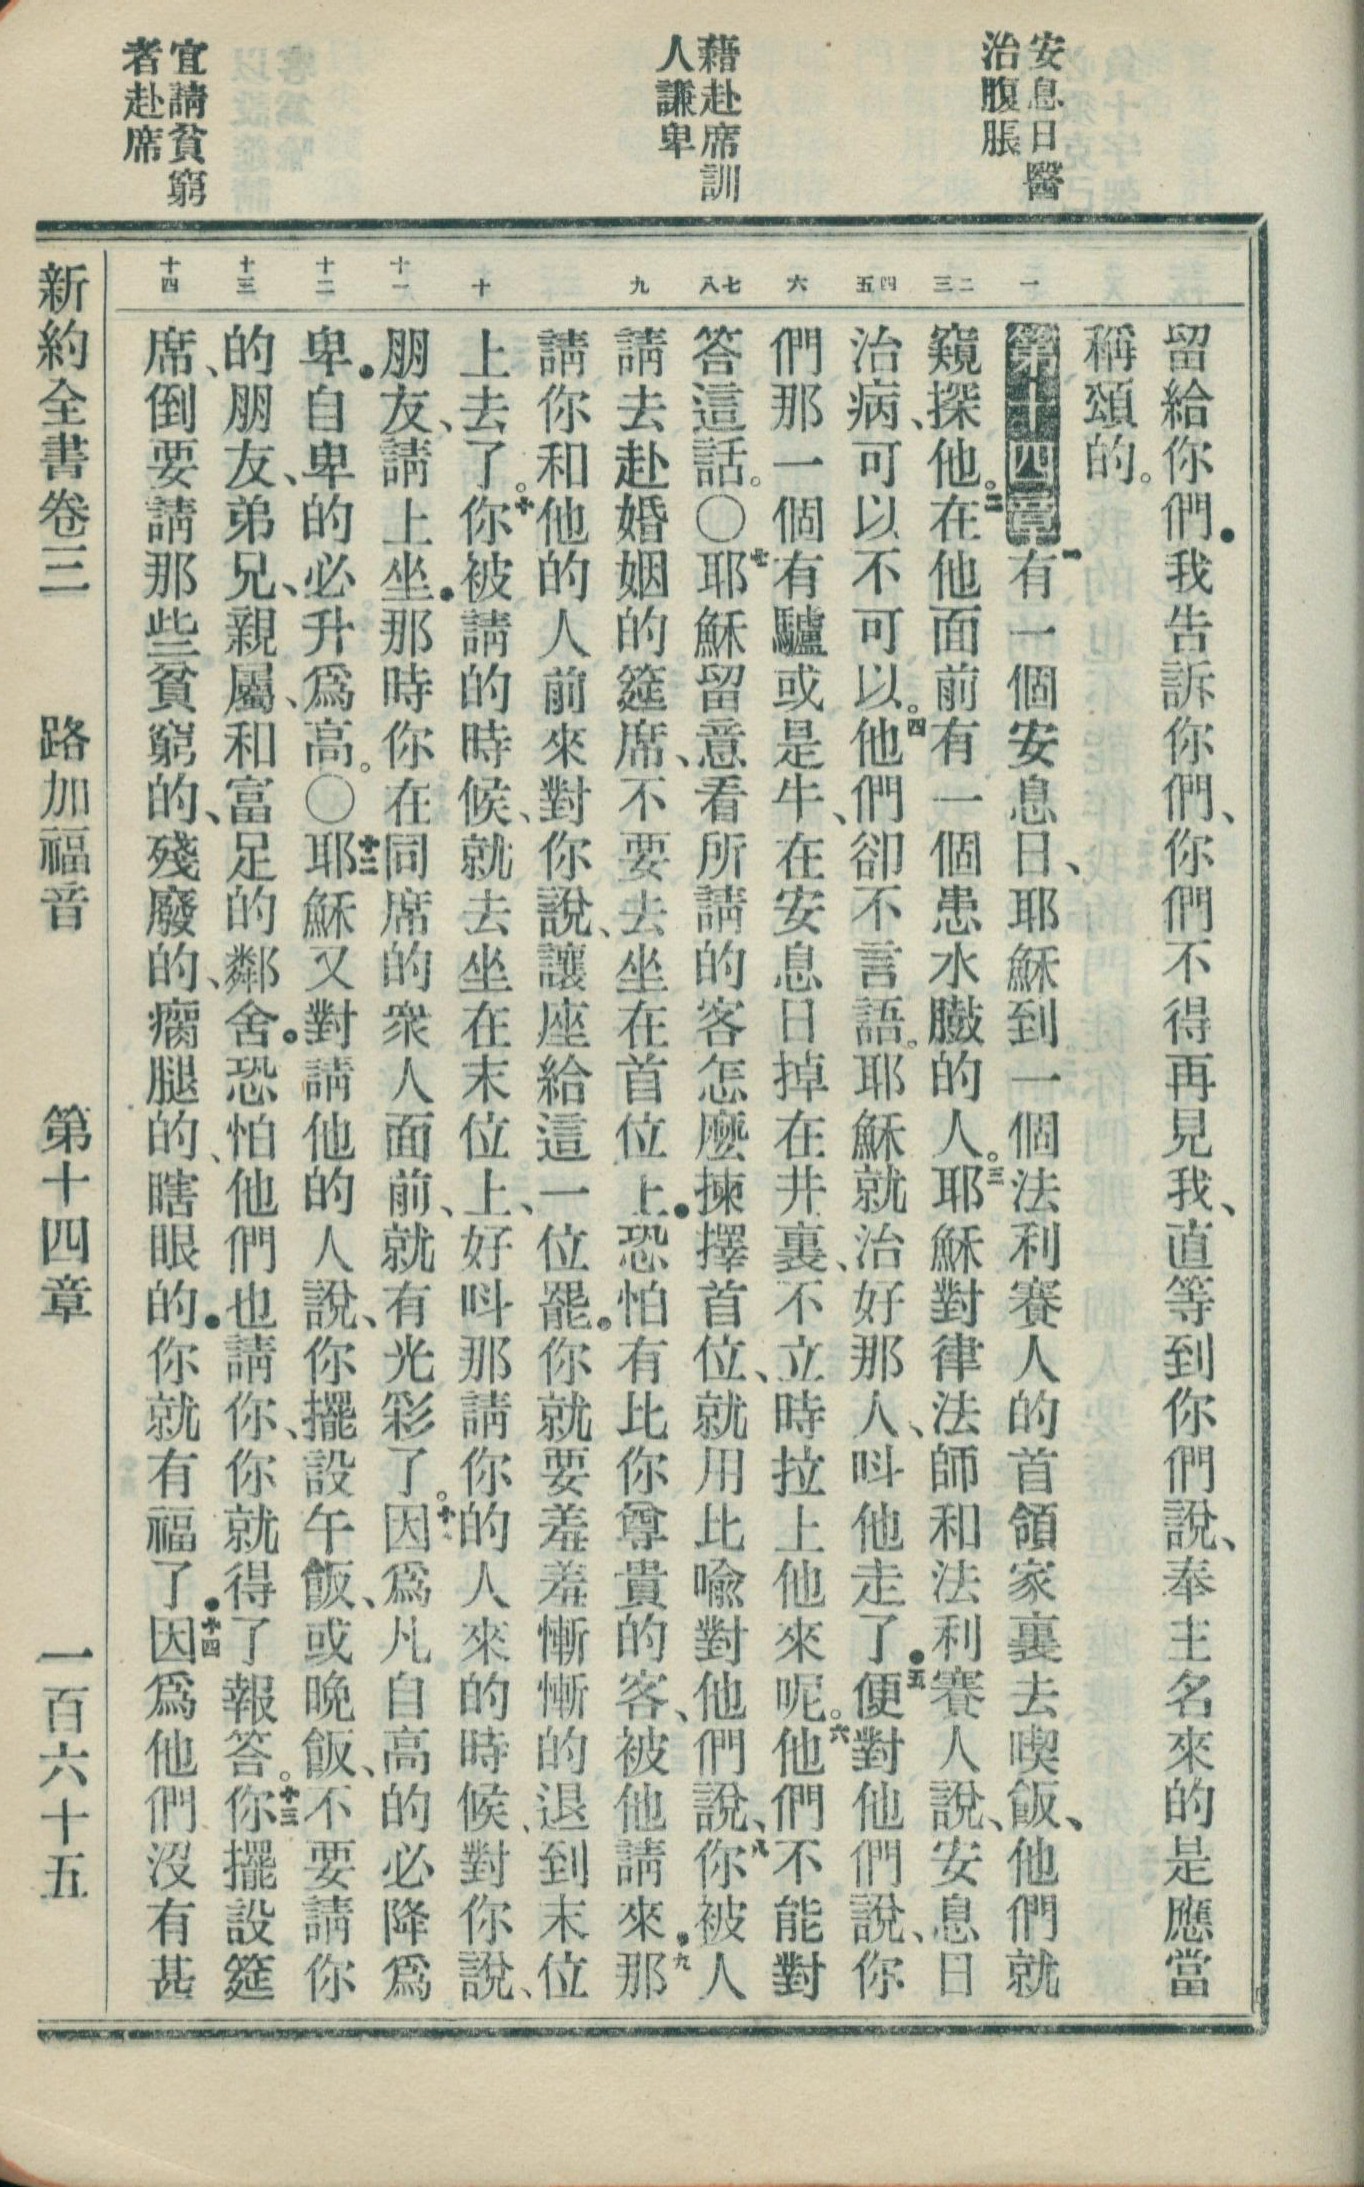 安息日醫
治腹脹
藉赴席訓
人謙卑
宜請貧窮
者赴席
一
二
三
四
五
六
七
八
九
十
十一
十二
十三
十四
留給你們．我告訴你們、你們不得再見我、直等到你們說、奉主名來的是應當
稱頌的。
第十四章一有一個安息日、耶穌到一個法利賽人的首領家裏去喫飯、他們就
窺探他。二在他面前有一個患水臌的人。三耶穌對律法師和法利賽人說、安息日
治病、可以不可以。四他們卻不言語。耶穌就治好那人、呌他走了．五便對他們說、你
們那一個有驢或是牛、在安息日掉在井裏、不立時拉上他來呢。六他們不能對
答這話。〇七耶穌留意看所請的客怎麼揀擇首位、就用比喩對他們說、八你被人
請去赴婚姻的筵席、不要去坐在首位上．恐怕有比你尊貴的客、被他請來．九那
請你和他的人前來對你說、讓座給這一位罷。你就要羞羞慚慚的退到末位
上去了。十你被請的時候、就去坐在末位上、好呌那請你的人來的時候、對你說、
朋友、請上坐．那時你在同席的衆人面前、就有光彩了。十一因爲凡自高的必降爲
卑．自卑的必升爲高。〇十二耶穌又對請他的人說、你擺設午飯、或晚飯、不要請你
的朋友、弟兄、親屬、和富足的鄰舍．恐怕他們也請你、你就得了報答。十三你擺設筵
席、倒要請那些貧窮的、殘廢的、瘸腿的、瞎眼的．你就有福了．十四因爲他們沒有甚
新約全書卷三　路加福音　第十四章　一百六十五